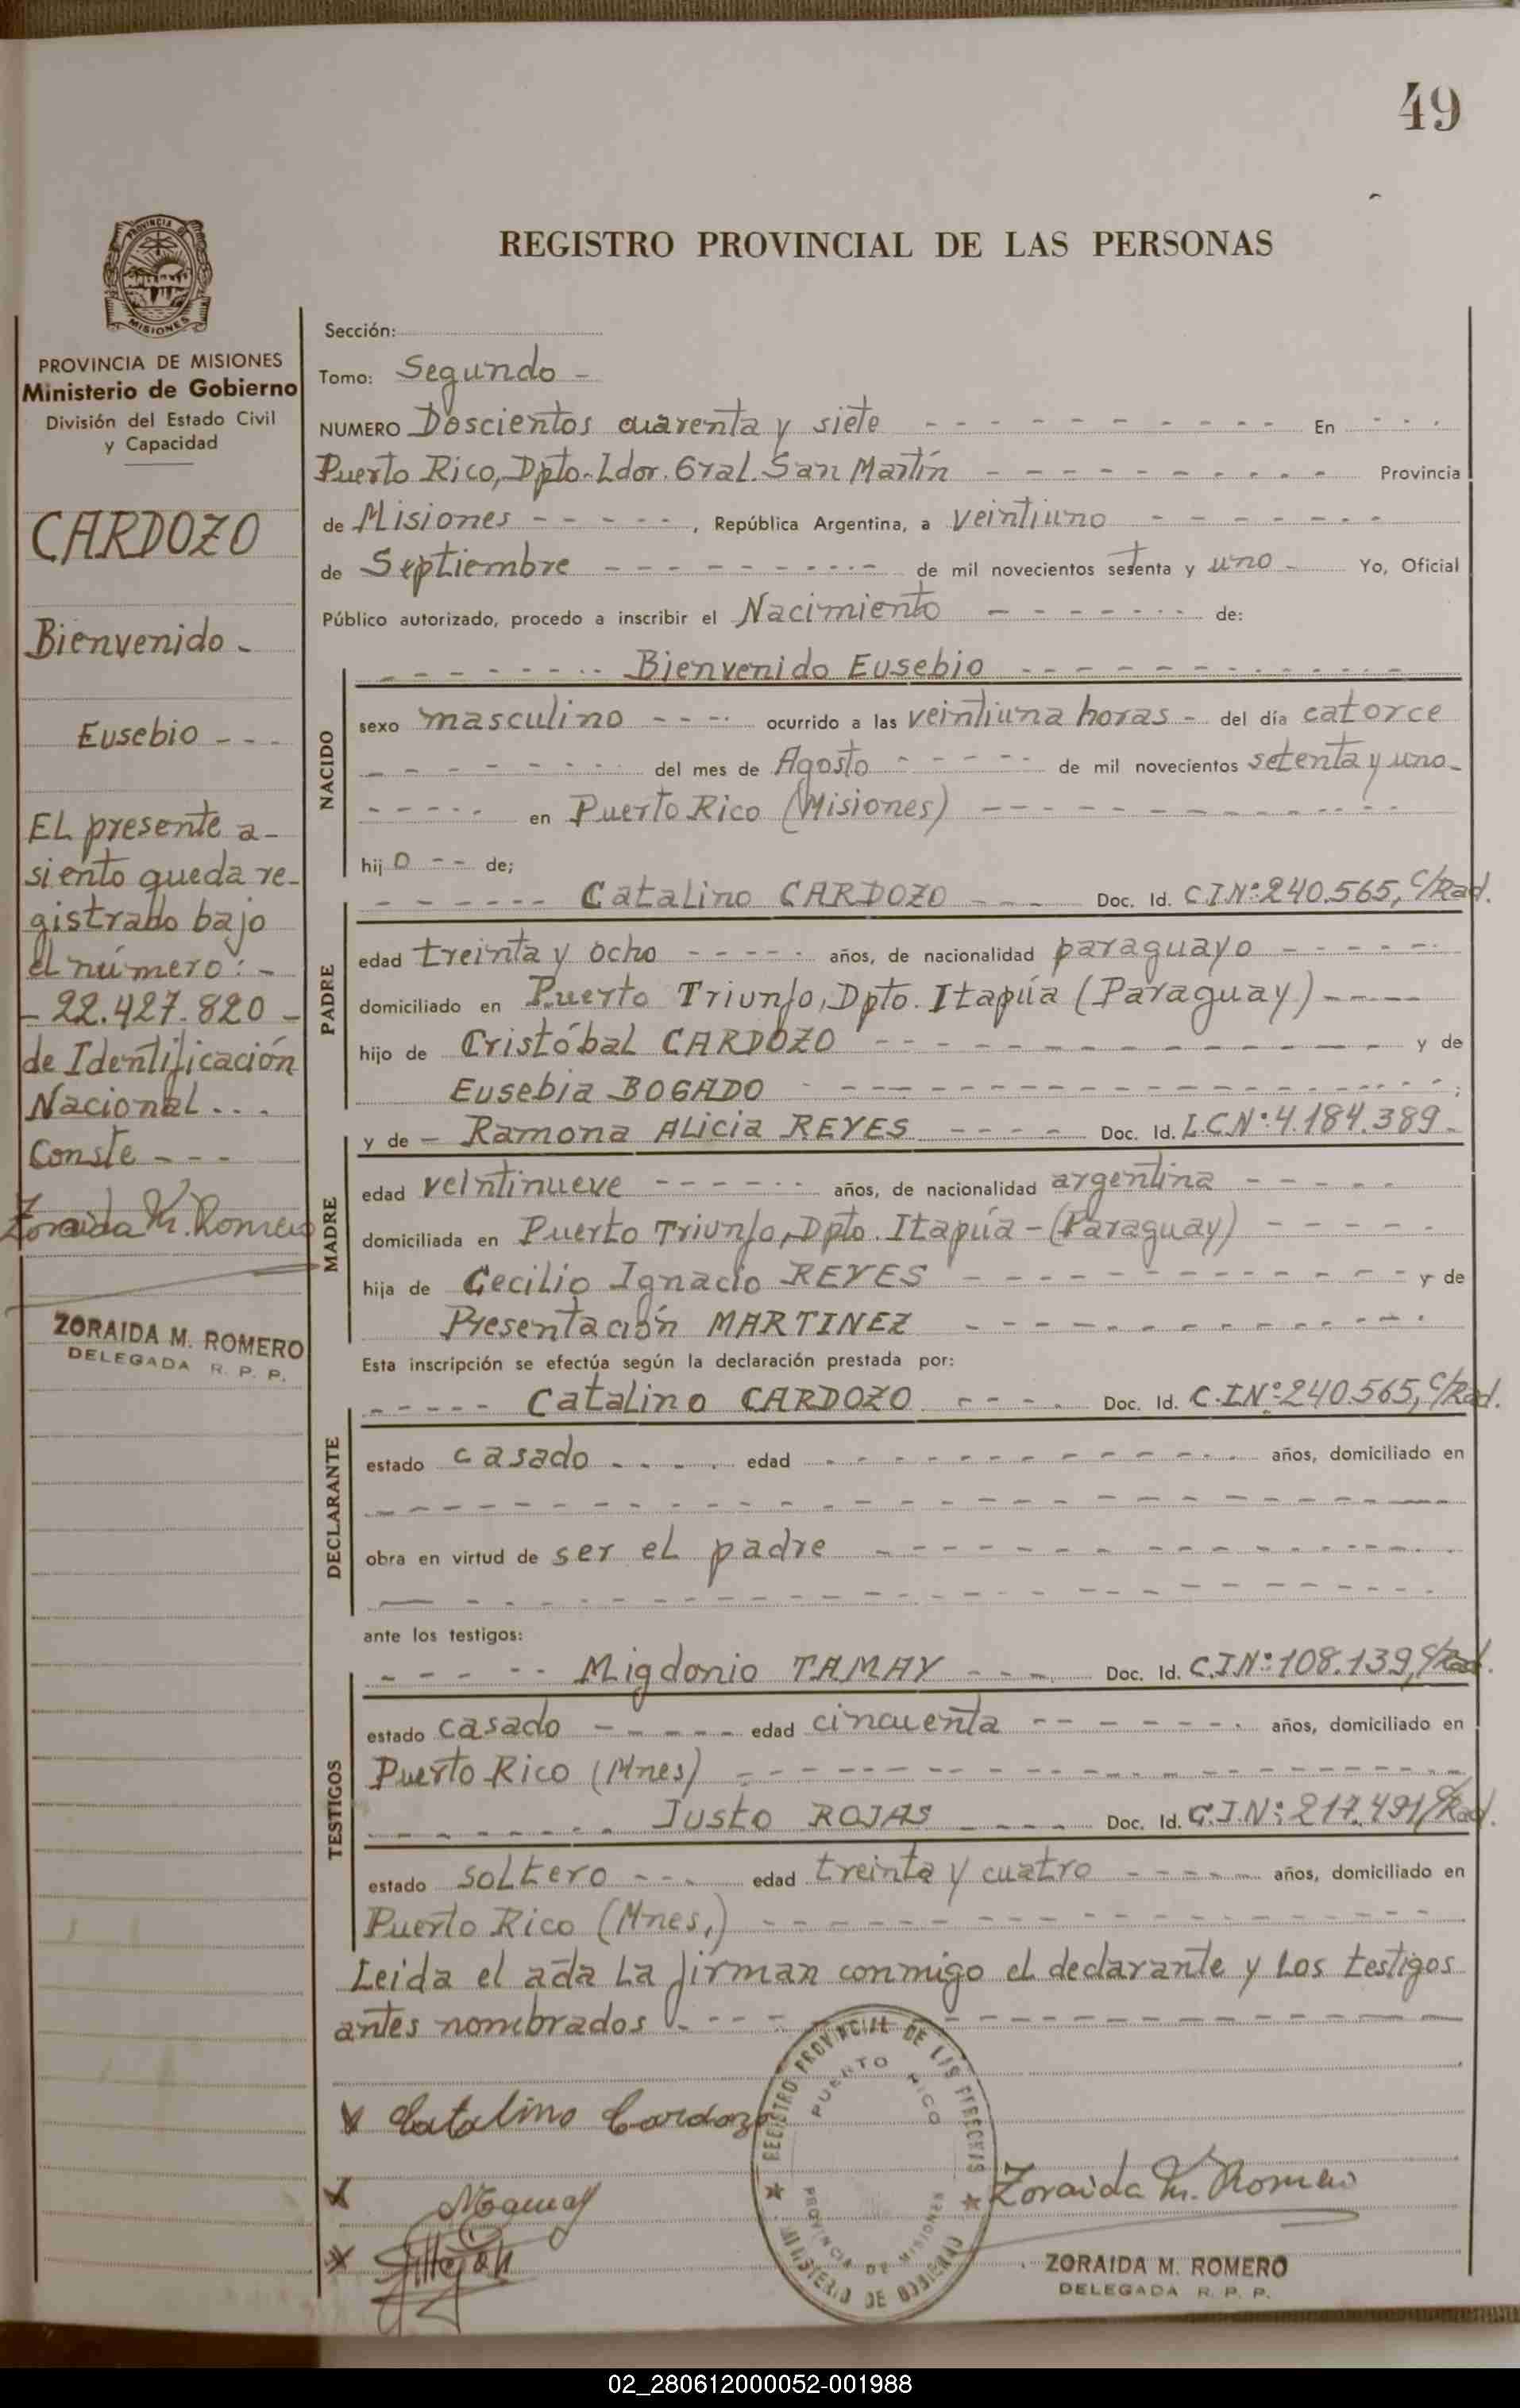 49
REGISTRO PROVINCIAL DE LAS PERSONAS
PROVINCIA DE MISIONES
PROVINCIA DE MISIONES
Ministerio de Gobierno
División del Estado Civil
y Capacidad
CARDOZO
Bienvenido -
Eusebio - - -
EL presente a-
siento queda re-
gistrado bajo
el número: -
- 22.427.820 -
de Identificación
Nacional . . .
Conste - - -
Zoraida M. Romero
ZORAIDA M. ROMERO
DELEGADA R. P. P.
Sección:
Tomo: Segundo -
NUMERO Doscientos cuarenta y siete - - - En - - -
Puerto Rico, Dpto. Ldor. Gral. San Martín - - - Provincia
de Misiones - - - , República Argentina, a veintiuno - - -
de Septiembre - - - de mil novecientos setenta y uno - Yo, Oficial
Público autorizado, procedo a inscribir el Nacimiento - - - de:
- - - Bienvenido Eusebio - - -
NACIDO
sexo masculino - - - ocurrido a las veintiuna horas - del día catorce
- - - del mes de Agosto - - - de mil novecientos setenta y uno -
- - - en Puerto Rico (Misiones) - - -
hijo - - de;
- - - Catalino CARDOZO - - - Doc. Id. C.I.Nº:240.565, C/Rad.
PADRE
edad treinta y ocho - - - años, de nacionalidad paraguayo - - -
domiciliado en Puerto Triunfo, Dpto. Itapúa (Paraguay) - - -
hijo de Cristóbal CARDOZO - - - y de
Eusebia BOGADO - - - ;
y de - Ramona ALicia REYES - - - Doc. Id. L.C.Nº:4.184.389 -
MADRE
edad veintinueve - - - años, de nacionalidad argentina - - -
domiciliada en Puerto Triunfo, Dpto. Itapúa - (Paraguay) - - -
hija de Cecilio Ignacio REYES - - - y de
Presentación MARTINEZ - - -
Esta inscripción se efectúa según la declaración prestada por:
- - - Catalino CARDOZO - - - Doc. Id. C.I.Nº:240.565, C/Rad.
DECLARANTE
estado casado - - - edad - - - años, domiciliado en
- - -
obra en virtud de ser el padre - - -
- - -
ante los testigos:
- - - Migdonio TAMAY - - - Doc. Id. C.I.Nº:108.139, C/Rad.
TESTIGOS
estado casado - - - edad cincuenta - - - años, domiciliado en
Puerto Rico (Mnes) - - -
- - - Justo ROJAS - - - Doc. Id. C.I.Nº:217.491, C/Rad.
estado soltero - - - edad treinta y cuatro - - - años, domiciliado en
Puerto Rico (Mnes.) - - -
Leida el acta la firman conmigo el declarante y los testigos
antes nombrados - - -
Catalino Cardozo
Zoraida M. Romero
REGISTRO PROVINCIAL DE LAS PERSONAS
PUERTO RICO
PROVINCIA DE MISIONES
MINISTERIO DE GOBIERNO
ZORAIDA M. ROMERO
DELEGADA R. P. P.
02_280612000052-001988